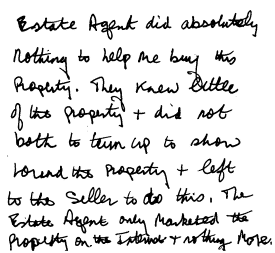 Estate Agent did absolutely
nothing to help me buy this
Property. They knew little
of the property + did not
both to turn up to show
round the property + left
to the seller to do this. The
Estate Agent only marketed the
property on the Internet + nothing more.